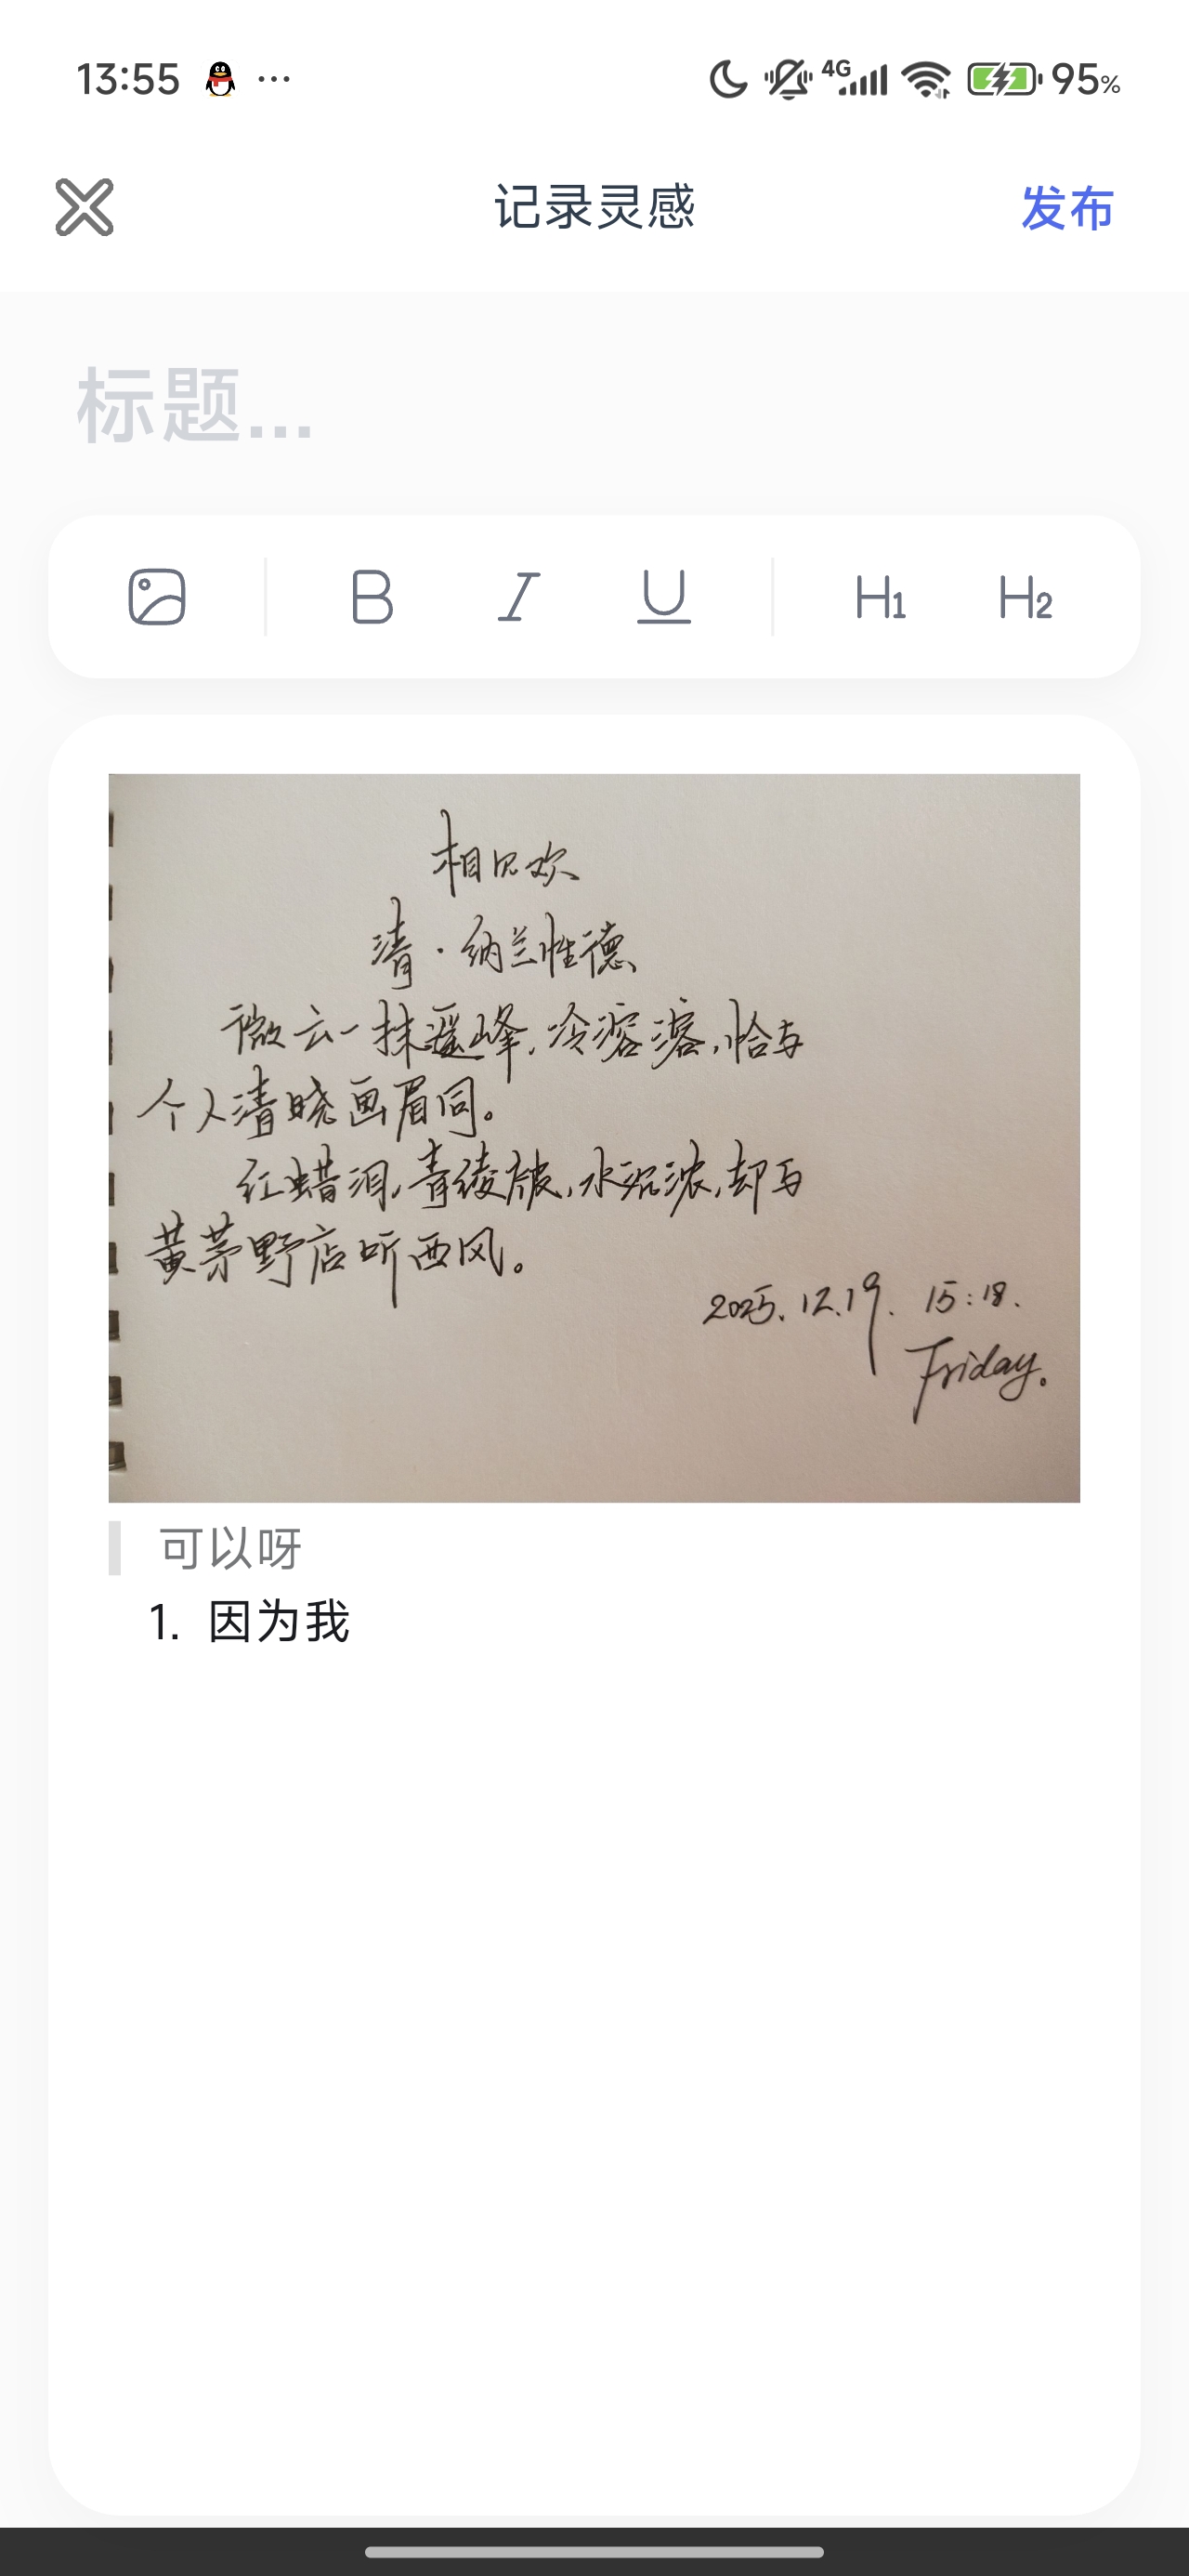 13:55
4G
95%
记录灵感
发布
标题...
B I U H1 H2
相见欢
清·纳兰性德
微云一抹遥峰,冷溶溶,恰与
个人清晓画眉同。
红蜡泪,青绫被,水沉浓,却与
黄茅野店听西风。
2025.12.19. 15:18.
Friday.
可以呀
1. 因为我